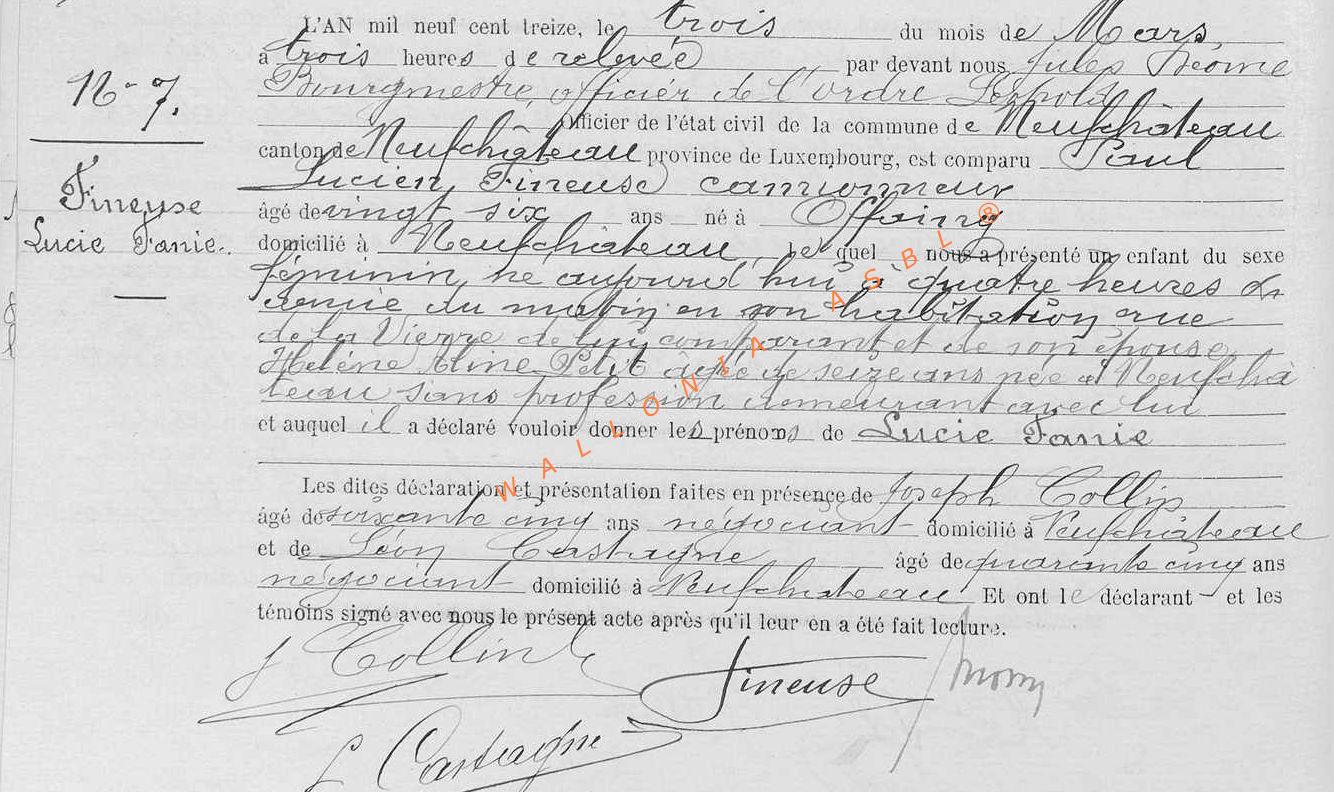 L'AN mil neuf cent treize, le trois du mois de Mars,
à trois heures de relevée par devant nous Jules
Bourgmestre, officier de l'ordre Léopold
Officier de l'état civil de la commune de Neufchâteau
canton de Neufchâteau province de Luxembourg, est comparu Paul
Lucien Fineuse camionneur
âgé de vingt six ans né à Offaing
domicilié à Neufchâteau, lequel nous a présenté un enfant du sexe
féminin né aujourd'hui à quatre heures &
demie du matin en son habitation rue
de la Vierge de lui comparant et de son épouse
Hélène Aline Petit âgée de seize ans née à Neufchâ
teau sans profession demeurant avec lui
et auquel il a déclaré vouloir donner les prénoms de Lucie Fanie
Les dites déclaration et présentation faites en présence de Joseph Collin
âgé de soixante cinq ans négociant domicilié à Neufchâteau
et de Léon Castagne âgé de quarante cinq ans
négociant domicilié à Neufchâteau Et ont le déclarant et les
témoins signé avec nous le présent acte après qu'il leur en a été fait lecture.
N° 7.
Fineuse
Lucie Fanie.
J Collin
Fineuse
L Castagne
WALLONIA ASBL ®